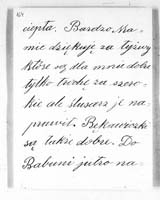 ciepła. Bardzo Ma-
mie dziękuję za łyżwy
które są dla mnie dobre
tylko trochę za szero-
kie ale ślusarz je na-
prawił. Rękawiczka
są także dobre. Do
Babuni jutro na-